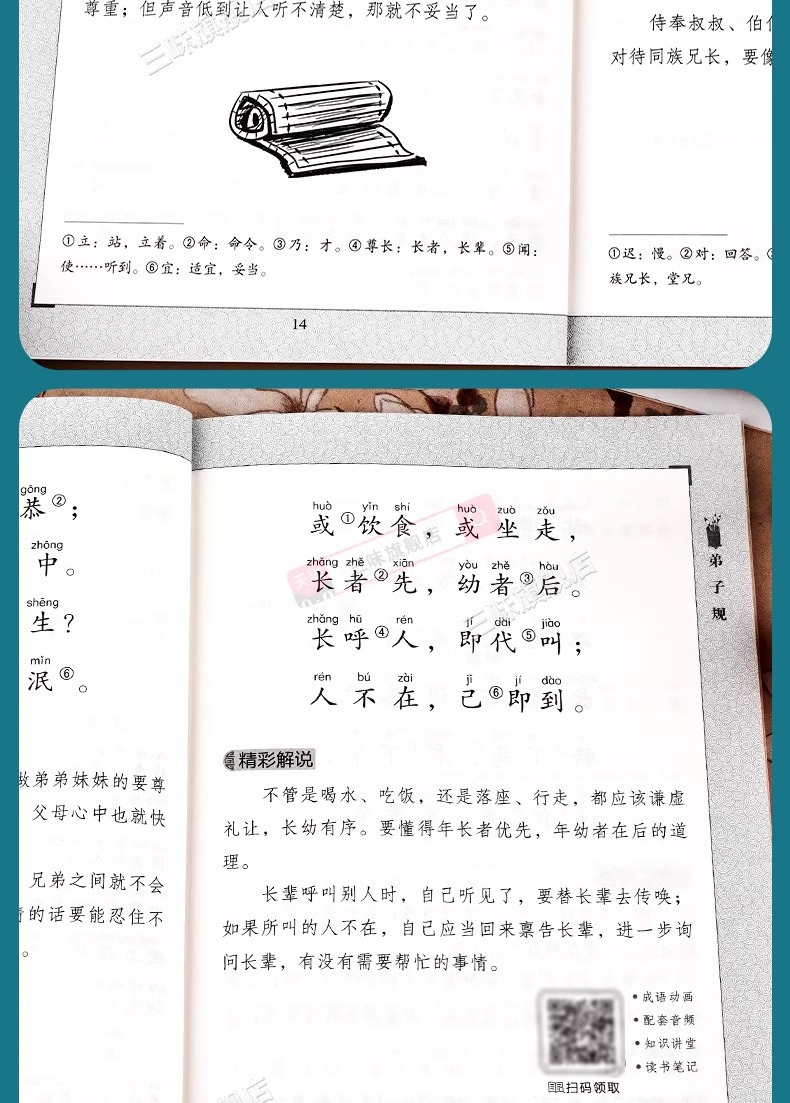 尊重；但声音低到让人听不清楚，那就不妥当了。
①立：站，立着。②命：命令。③乃：才。④尊长：长者，长辈。⑤闻：
使……听到。⑥宜：适宜，妥当。
14
侍奉叔叔、伯
对待同族兄长，要像
①迟：慢。②对：回答。
族兄长，堂兄。
gōng
恭②；
zhōng
中。
shēng
生？
mǐn
泯⑥。
做弟弟妹妹的要尊
父母心中也就快
兄弟之间就不会
的话要能忍住不
。
huò yǐn shí huò zuò zǒu
或①饮食，或坐走，
zhǎng zhě xiān yòu zhě hòu
长者②先，幼者③后。
zhǎng hū rén jí dài jiào
长呼④人，即代⑤叫；
rén bú zài jǐ jí dào
人不在，己⑥即到。
精彩解说
不管是喝水、吃饭，还是落座、行走，都应该谦虚
礼让，长幼有序。要懂得年长者优先，年幼者在后的道
理。
长辈呼叫别人时，自己听见了，要替长辈去传唤；
如果所叫的人不在，自己应当回来禀告长辈，进一步询
问长辈，有没有需要帮忙的事情。
•成语动画
•配套音频
•知识讲堂
•读书笔记
扫码领取
弟子规
三味旗舰店